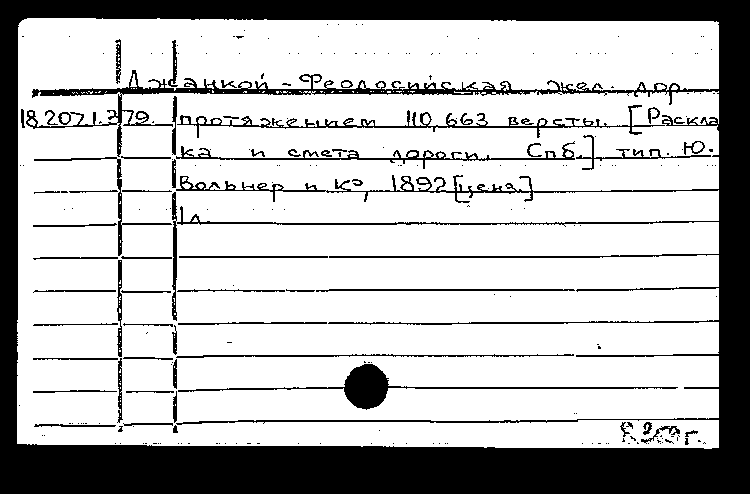 Джанкой - Феодосийская жел. дор.
18.207.1.379. протяжением 110,663 версты. [Раскла
ка и смета дороги. Спб.], тип. Ю.
Вольнер и К°, 1892 [цена.]
1 л.